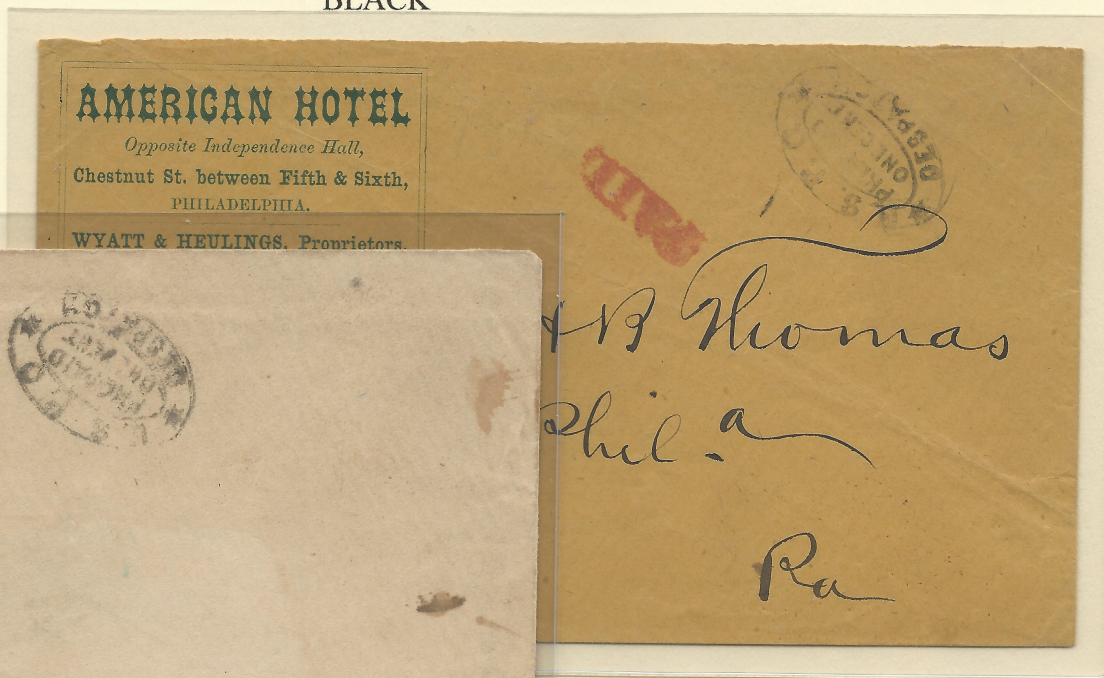 BLACK
AMERICAN HOTEL
Opposite Independence Hall,
Chestnut St. between Fifth & Sixth,
PHILADELPHIA.
WYATT & HEULINGS, Proprietors.
PAID
U. S. P. O.
DESPATCH
PREPAID
ONE CENT
H B Thomas
Phil.a
Pa
U. S. P. O.
DESPATCH
PREPAID
ONE CENT